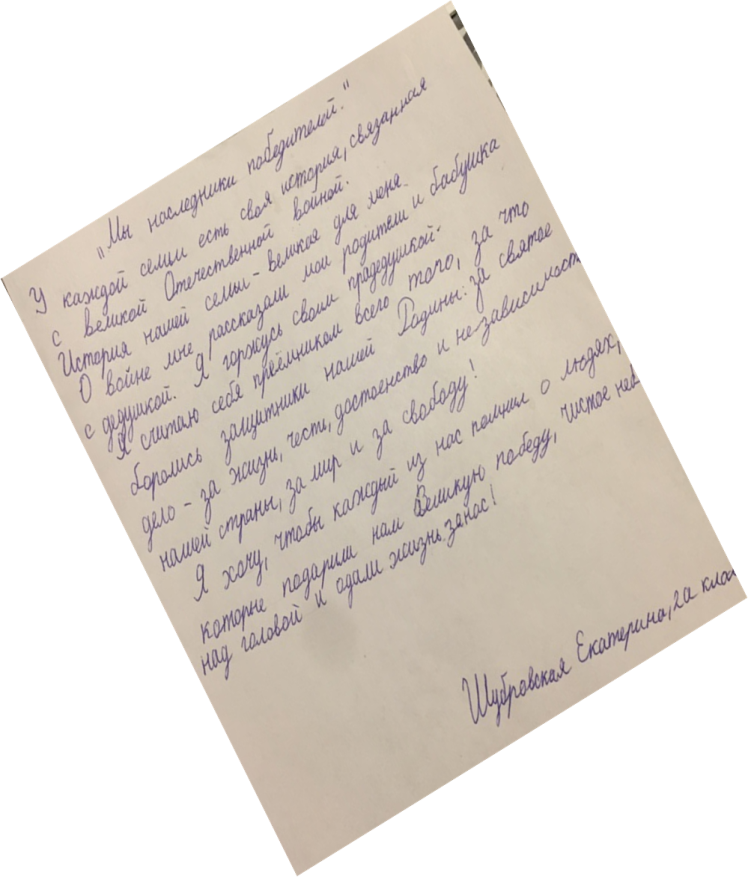 „Мы наследники победителей."
У каждой семьи есть своя история, связанная
с великой Отечественной войной.
История нашей семьи - великая для меня.
О войне мне рассказали мои родители и бабушка
с дедушкой. Я горжусь своим прадедушкой.
Я считаю себя преёмником всего того, за что
боролись защитники нашей Родины: за святое
дело - за жизнь, честь, достоенство и независимость
нашей страны, за мир и за свободу!
Я хочу, чтобы каждый из нас помнил о людях,
которые подарили нам Великую победу, чистое неб
над головой и одали жизнь за нас!
Шубровская Екатерина, 2а клас